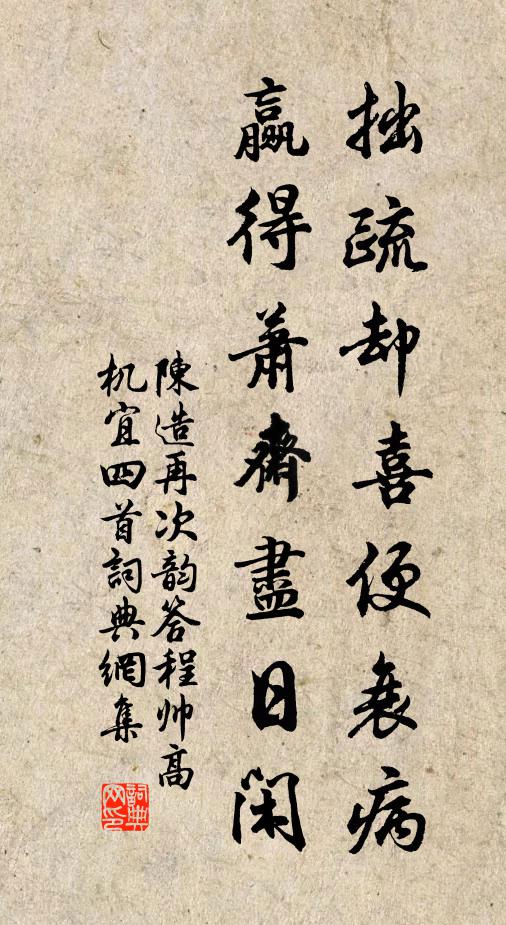 拙疏却喜便衰病
赢得萧齋盡日閑
陳造再次韵答程帅高
机宜四首詞典網集
詞典
网印